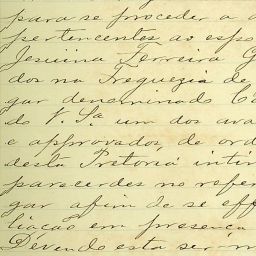 para se proceder a a
pertencentes ao espo
Jesuina Ferreira G
dos na Freguezia de
gar denominado Ca
do V. Sª um dos ava
e approvados, de ord
desta Pretoria intin
parecerdes no refer
gar afim de se eff
liação em presença
Devendo esta ser m